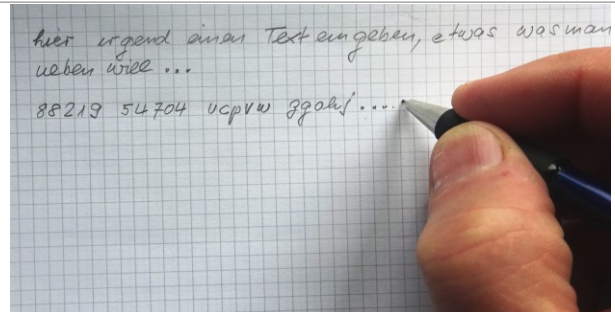 hier irgend einen Text eingeben, etwas was man
ueben will ...
88219 54704 vcpvw ggohj .....